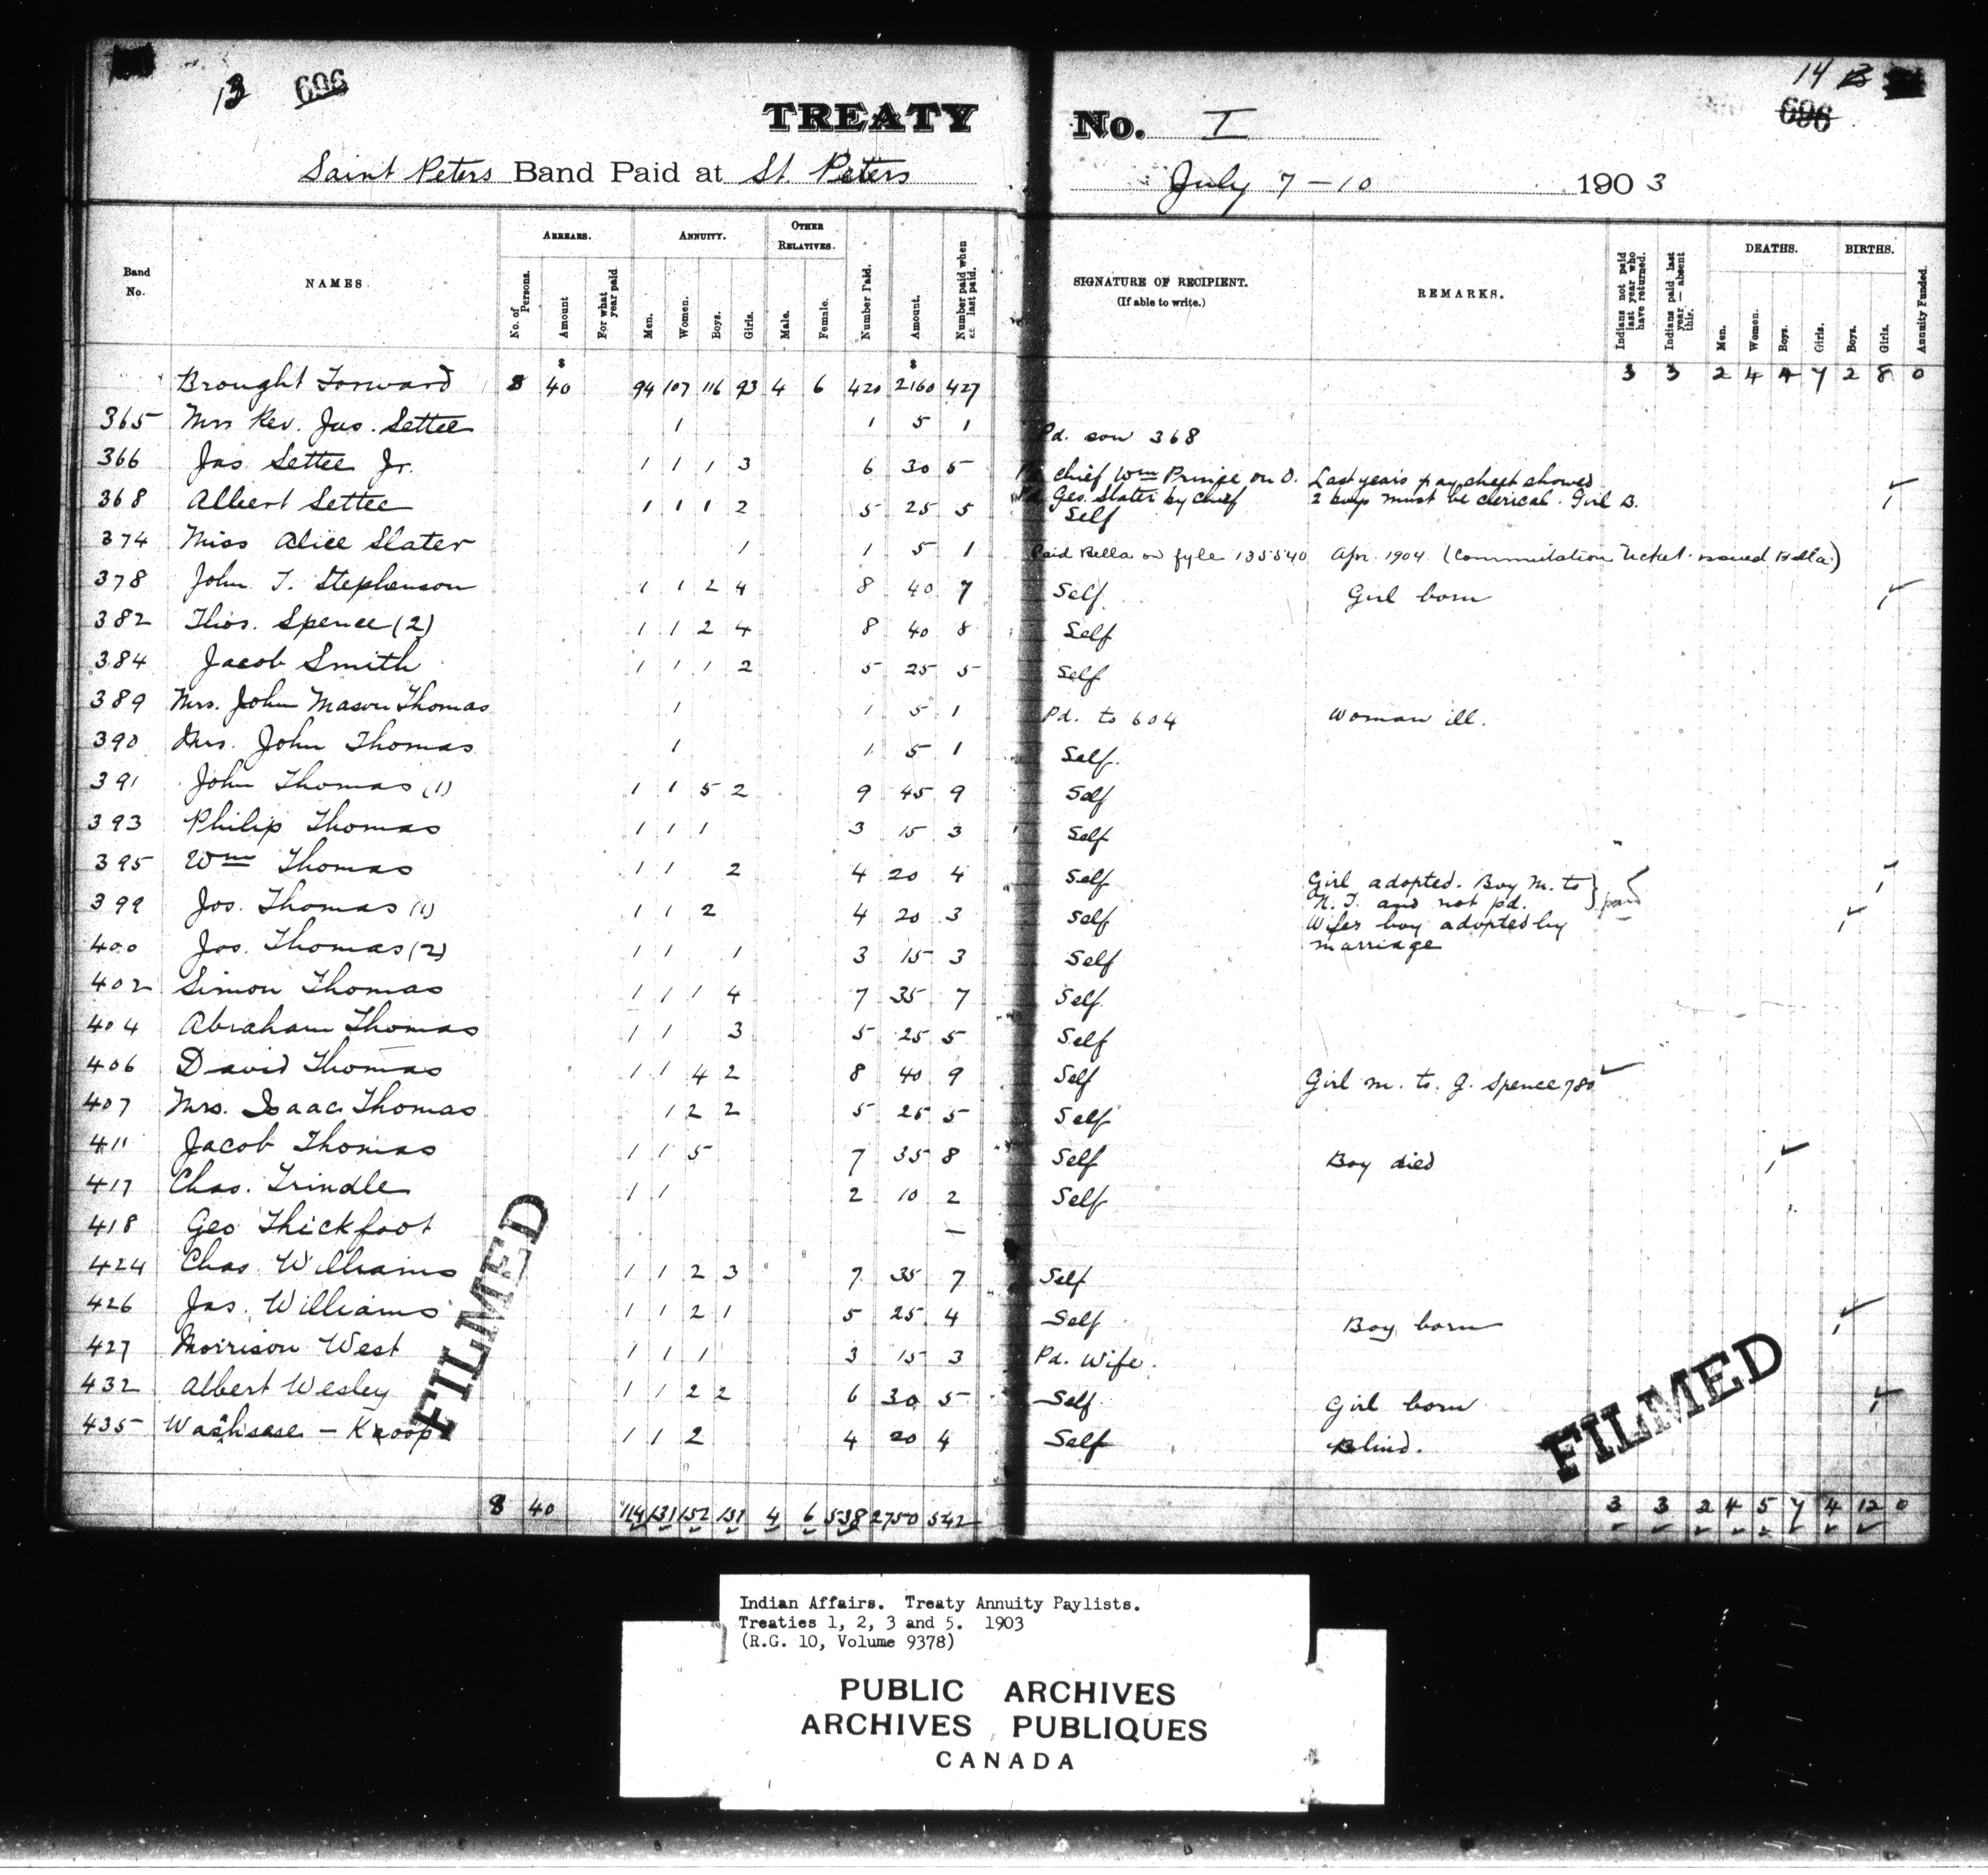 13 696
14 13
696
TREATY No. I
Saint Peters Band Paid at St. Peters July 7-10 1903
Band No. NAMES. ARREARS. No. of Persons. Amount For what year paid. ANNUITY. Men. Women. Boys. Girls. OTHER RELATIVES. Male. Female. Number Paid. Amount. Number paid when last paid. SIGNATURE OF RECIPIENT. (If able to write.) REMARKS. Indians not paid last year who have returned. Indians paid last year — absent this. DEATHS. Men. Women. Boys. Girls. BIRTHS. Boys. Girls. Annuity Funded.
$ $
Brought Forward 8 40 94 107 116 93 4 6 420 2160 427 3 3 2 4 4 7 2 8 0
365 Mrs Rev. Jas. Settee 1 1 5 1 Pd. son 368
366 Jas Settee Jr. 1 1 1 3 6 30 5 chief Wm Prince on O. Last years pay sheet showed 1
368 Albert Settee 1 1 1 2 5 25 5 Geo. Slater by Chief 2 boys must be clerical. Girl B.
Self
374 Miss Alice Slater 1 1 5 1 Paid Bella on fyle 135540 Apr. 1904 (Commutation Ticket issued Bella)
378 John T. Stephenson 1 1 2 4 8 40 7 Self Girl born 1
382 Thos. Spence (2) 1 1 2 4 8 40 8 Self
384 Jacob Smith 1 1 1 2 5 25 5 Self
389 Mrs. John Mason Thomas 1 1 5 1 Pd. to 604 Woman ill.
390 Mrs. John Thomas 1 1 5 1 Self.
391 John Thomas (1) 1 1 5 2 9 45 9 Self
393 Philip Thomas 1 1 1 3 15 3 Self
395 Wm Thomas 1 1 2 4 20 4 Self Girl adopted. Boy M. to 1
N. T. and not pd.
399 Jos. Thomas (1) 1 1 2 4 20 3 Self Wifes boy adopted by 1
marriage
400 Jos. Thomas (2) 1 1 1 3 15 3 Self
402 Simon Thomas 1 1 1 4 7 35 7 Self
404 Abraham Thomas 1 1 3 5 25 5 Self
406 David Thomas 1 1 4 2 8 40 9 Self Girl m. to. J. Spence 780
407 Mrs. Isaac Thomas 1 2 2 5 25 5 Self
411 Jacob Thomas 1 1 5 7 35 8 Self Boy died 1
417 Chas. Trindle 1 1 2 10 2 Self
418 Geo Thickfoot —
424 Chas Williams 1 1 2 3 7 35 7 Self
426 Jas. Williams 1 1 2 1 5 25 4 Self Boy born 1
427 Morrison West 1 1 1 3 15 3 Pd. Wife.
432 Albert Wesley 1 1 2 2 6 30 5 Self Girl born 1
435 1 1 2 4 20 4 Self Blind.
8 40 114 131 152 131 4 6 538 2750 542 3 3 2 4 5 7 4 12 0
FILMED
FILMED
Indian Affairs. Treaty Annuity Paylists.
Treaties 1, 2, 3 and 5. 1903
(R.G. 10, Volume 9378)
PUBLIC ARCHIVES
ARCHIVES PUBLIQUES
CANADA